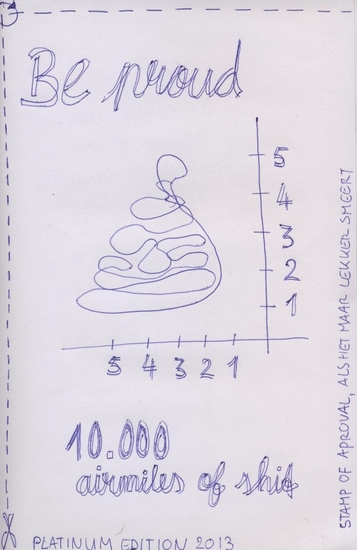 Be proud
5
4
3
2
1
5 4 3 2 1
10.000
airmiles of shit
PLATINUM EDITION 2013
STAMP OF APROVAL, ALS HET MAAR LEKKER SMEERT